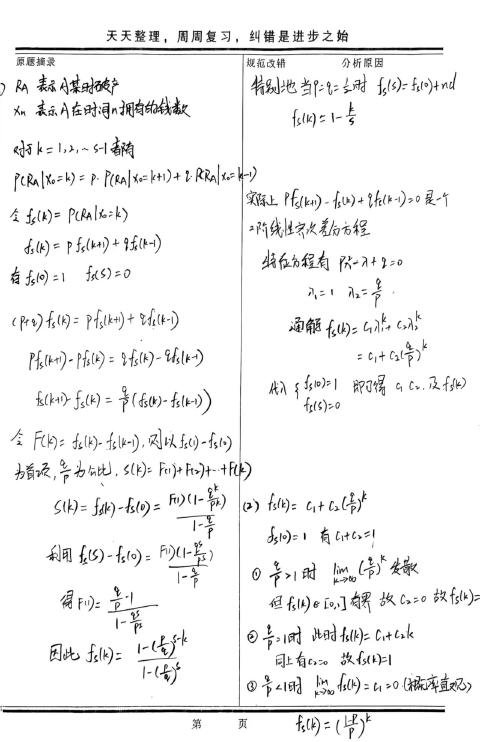 天天整理，周周复习，纠错是进步之始
原题摘录
规范改错 分析原因
) RA 表示A某时破产
Xn 表示A在时间n拥有的钱数
对于k=1,2,~s-1都有
P(RA|X0=k)=p·P(RA|X0=k+1)+q·P(RA|X0=k-1)
令 fs(k)=P(RA|X0=k)
fs(k)=pfs(k+1)+qfs(k-1)
有 fs(0)=1 fs(s)=0
(p+q)fs(k)=pfs(k+1)+qfs(k-1)
pfs(k+1)-pfs(k)=qfs(k)-qfs(k-1)
fs(k+1)-fs(k)=q/p(fs(k)-fs(k-1))
令 F(k)=fs(k)-fs(k-1),则以fs(1)-fs(0)
为首项,q/p为公比, S(k)=F(1)+F(2)+…+F(k)
S(k)=fs(k)-fs(0)=F(1)(1-q^k/p^k)/(1-q/p)
利用 fs(s)-fs(0)=F(1)(1-q^s/p^s)/(1-q/p)
得 F(1)=(q/p-1)/(1-q^s/p^s)
因此 fs(k)=(1-(p/q)^s-k)/(1-(p/q)^s)
特别地 当p=q=1/2时 fs(s)=fs(0)+nd
fs(k)=1-k/s
实际上 pfs(k+1)-fs(k)+qfs(k-1)=0 是一个
二阶线性齐次差分方程
特征方程有 pλ²-λ+q=0
λ1=1 λ2=q/p.
通解 fs(k)=C1λ1^k+C2λ2^k
=C1+C2(q/p)^k
代入{fs(0)=1 即可得 C1 C2.及fs(k)
fs(s)=0
(2) fs(k)=C1+C2(q/p)^k
fs(0)=1 有C1+C2=1
① q/p>1时 lim k→∞ (q/p)^k 发散
但fs(k)∈[0,1]有界 故C2=0 故fs(k)=
② q/p=1时 此时fs(k)=C1+C2k
同上有C2=0 故fs(k)=1
③ q/p<1时 lim k→∞ fs(k)=C1=0(概率直观)
第 页
fs(k)=(1-p/p)^k